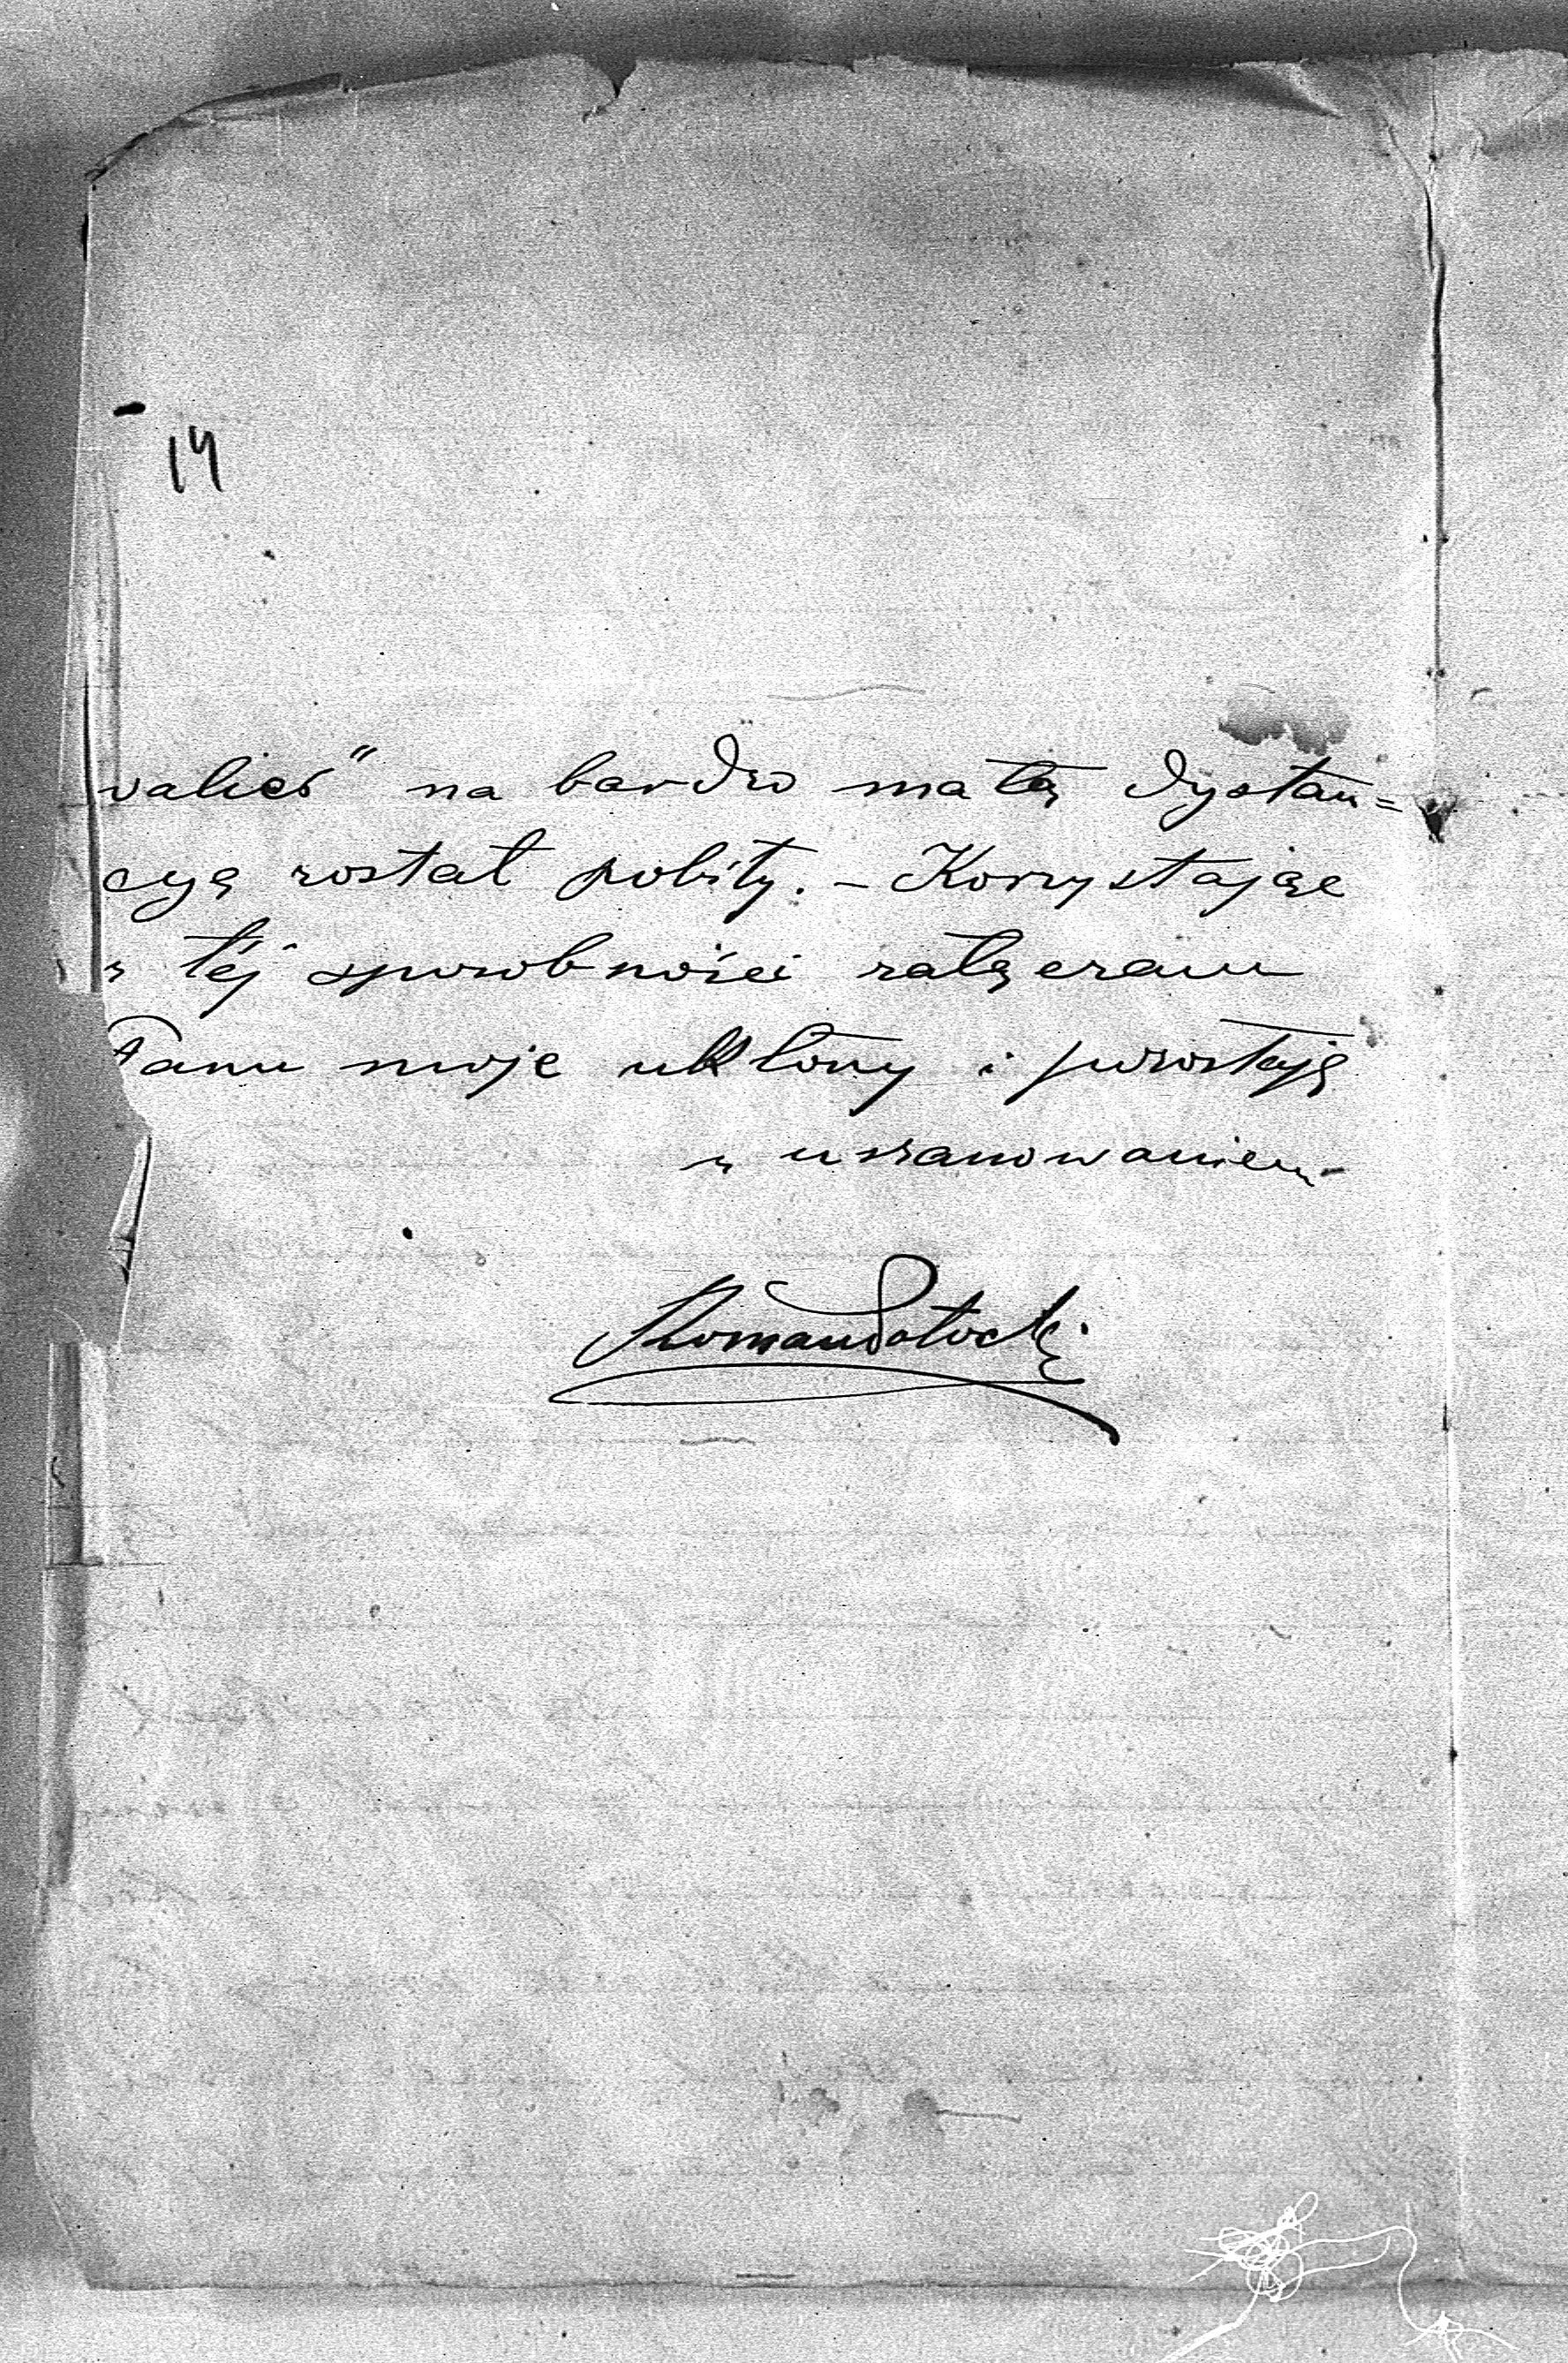 14
valier" na bardzo małą dystan=
cyą został pobity. – Korzystając
z téj sposobności załączam
Panu moje ukłony i pozostaję
z uszanowaniem
Roman Potocki